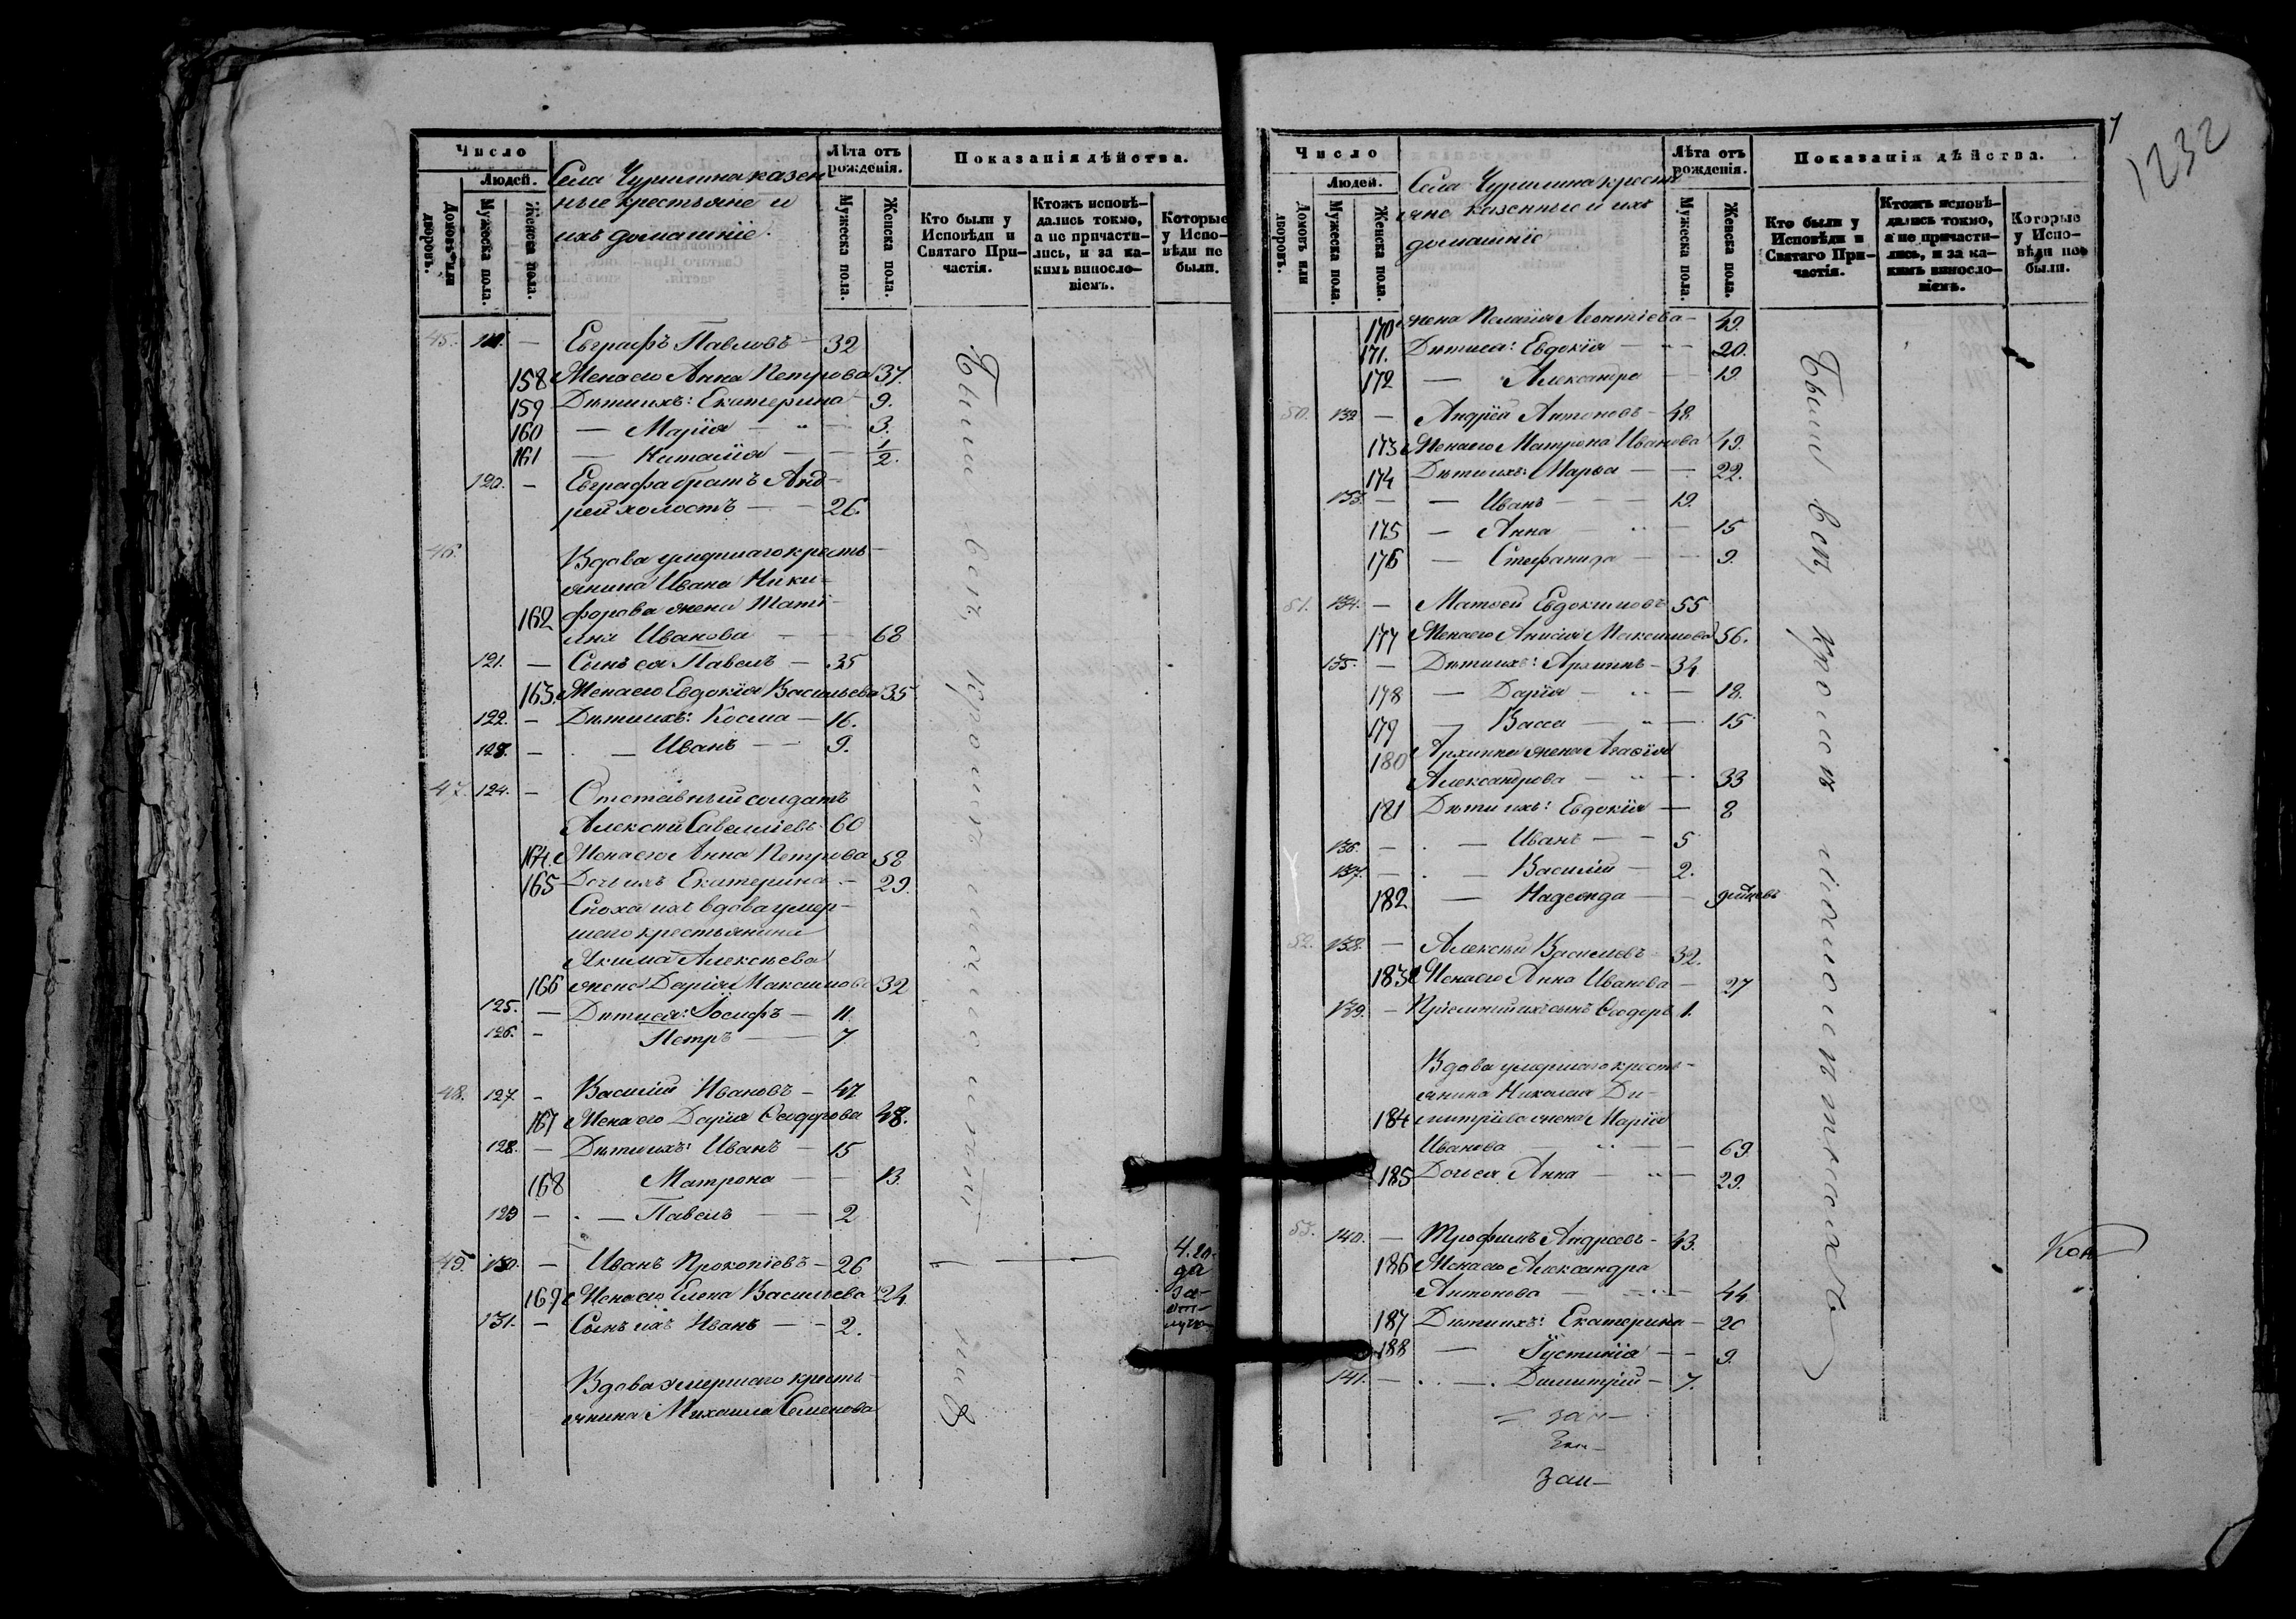 Число
Людей.
Домовъ или дворовъ.
Мужеска пола.
Женска пола.
Села Чурилина казен
ные крестьяне и
ихъ домашніе.
Лѣта отъ рожденія.
Мужеска пола.
Женска пола.
Показанія дѣйства.
Кто были у Исповѣди и Святаго Причастія.
Ктожъ исповѣдались токмо, а не причастились, и за какимъ винословіемъ.
Которые у Исповѣди не были.
45. 119. — Евграфъ Павловъ — 32
158 Жена его Анна Петрова 37.
159 Дѣти ихъ: Екатерина 9.
160 — Марія — 3.
161 — Наталія — 1/2.
120. — Евграфа братъ Анд-
рей холостъ — 26
46. Вдова умершаго кресть-
янина Ивана Ники-
162 форова жена Тати-
яна Иванова — 68
121. — Сынъ ея Павелъ — 35
163. Жена его Евдокія Васильева 35
122. — Дѣти ихъ: Косма — 16.
123. — — Иванъ — 9.
47. 124. — Отставный солдатъ
Алексѣй Савеліевъ 60
164. Жена его Анна Петрова 58
165 Дочь ихъ Екатерина — 29.
Сноха ихъ вдова умер-
шаго крестьянина
Якима Алексѣева
166 жена Дарія Максимова 32
125. — Дѣти ея: Іосифъ — 11.
126. — Петръ — 7
48. 127. — Василій Ивановъ — 47
167 Жена его Дарія Ѳеодорова 48.
128. — Дѣти ихъ: Иванъ — 15
168 Матрона — 13.
129 — — Павелъ — 2
49. 130. — Иванъ Прокопіевъ — 26
169 Жена его Елена Васильева 24
131. — Сынъ ихъ Иванъ — 2.
Вдова умершаго кресть-
янина Михаила Семенова
Были вси, кромѣ
4. го-
да
за
от-
1232
Число
Людей.
Домовъ или дворовъ.
Мужеска пола.
Женска пола.
Села Чурилина кресть
яне казенные и ихъ
домашніе
Лѣта отъ рожденія.
Мужеска пола.
Женска пола.
Показанія дѣйства.
Кто были у Исповѣди и Святаго Причастія.
Ктожъ исповѣдались токмо, а не причастились, и за какимъ винословіемъ.
Которые у Исповѣди не были.
170 жена Пелагія Леонтіева — 49.
171. Дѣти ея: Евдокія — 20.
172 — Александра — 19.
50. 132 — Андрей Антоновъ — 48.
173 Жена его Матрона Иванова 49.
174 Дѣти ихъ: Марѳа — 22.
133. — — Иванъ — 19.
175 — Анна — 15
176 — Стефанида — 9.
51. 134. — Матѳей Евдокимовъ 55
177 Жена его Анисія Максимова 56.
135. — Дѣти ихъ: Архипъ — 34
178 — Дарія — 18.
179 — Васса — 15
180 Архипа жена Агаѳія
Александрова — 33
181 Дѣти ихъ: Евдокія — 8
136. — — Иванъ — 5
137. — — Василій — 2.
182 — Надежда —
52. 138. — Алексѣй Васильевъ 32.
183 Жена его Анна Иванова — 27
139. — Пріемный ихъ сынъ Ѳеодоръ 1.
Вдова умершаго кресть-
янина Николая Ди-
184 митріева жена Марія
Иванова — 69.
185 Дочь ея Анна — 29.
53. 140. — Трофимъ Андреевъ — 43.
186 Жена его Александра
Антонова — 44
187 Дѣти ихъ: Екатерина — 20
188 — Іустинія — 9.
141. — — Димитрій — 7.
Были вси, кромѣ